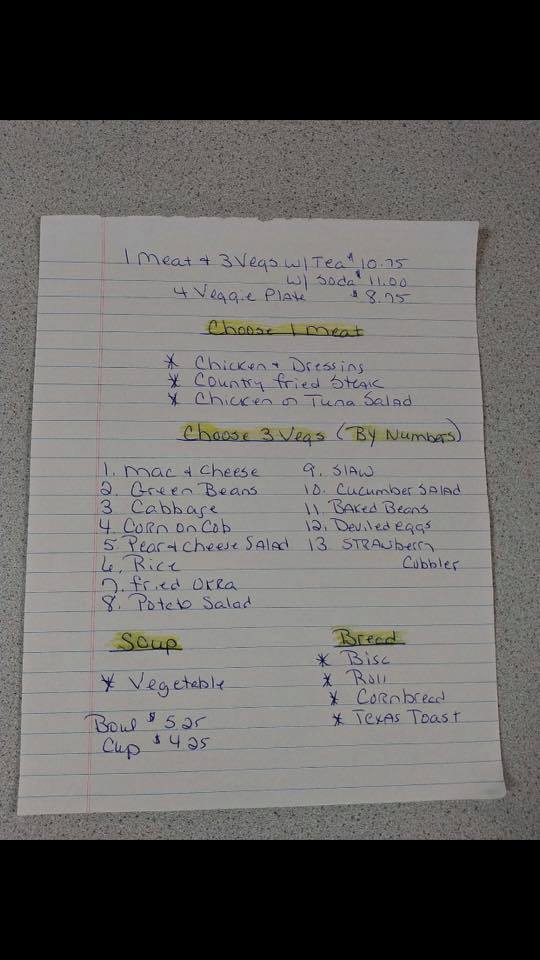 1 Meat & 3 Vegs w/ Tea $10.75
w/ Soda $11.00
4 Veggie Plate $8.75
Choose 1 Meat
* Chicken & Dressing
* Country fried Steak
* Chicken or Tuna Salad
Choose 3 Vegs (By Numbers)
1. Mac & Cheese
2. Green Beans
3 Cabbage
4. Corn on Cob
5. Pear & Cheese Salad
6. Rice
7. fried Okra
8. Potato Salad
9. Slaw
10. Cucumber Salad
11. Baked Beans
12. Deviled eggs
13 Strawberry
Cobbler
Soup
* Vegetable
Bowl $5.25
Cup $4.25
Bread
* Bisc
* Roll
* Cornbread
* Texas Toast